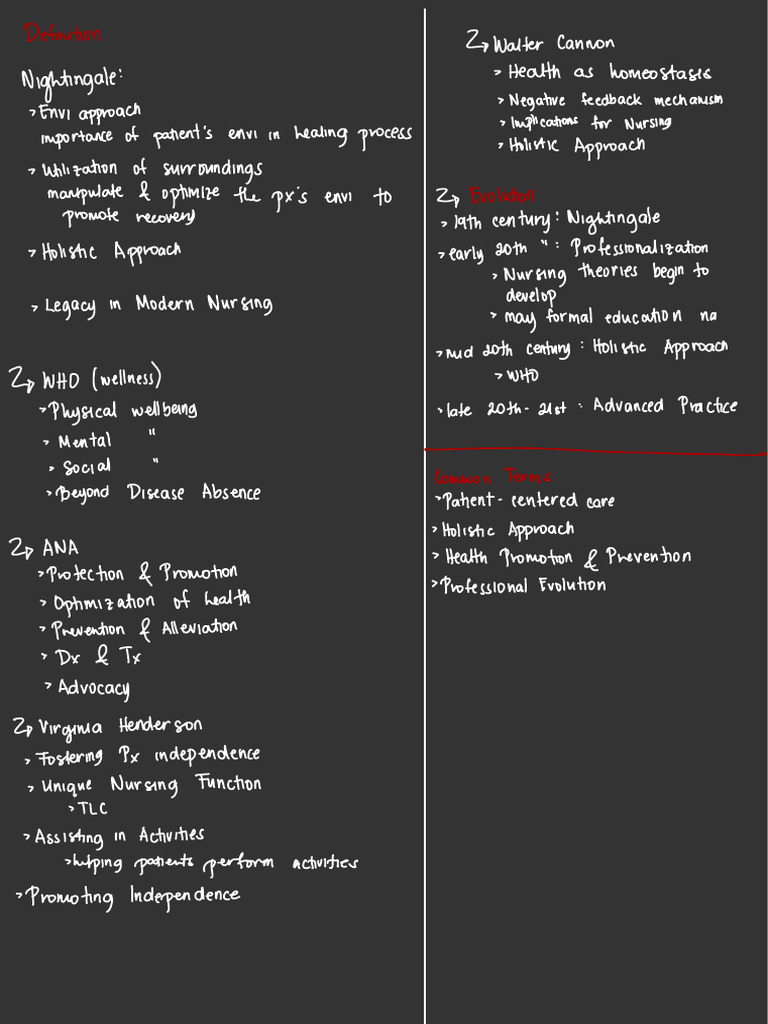 Definition
Nightingale:
> Envi approach
importance of patient's envi in healing process
> Utilization of surroundings
manipulate & optimize the px's envi to
promote recovery
> Holistic Approach
> Legacy in Modern Nursing
WHO (wellness)
> Physical wellbeing
> Mental "
> Social "
> Beyond Disease Absence
ANA
> Protection & Promotion
> Optimization of health
> Prevention & Alleviation
> Dx & Tx
> Advocacy
Virginia Henderson
> Fostering Px independence
> Unique Nursing Function
> TLC
> Assisting in Activities
> helping patients perform activities
> Promoting Independence
Walter Cannon
> Health as homeostasis
> Negative feedback mechanism
> Implications for Nursing
> Holistic Approach
Evolution
> 19th century: Nightingale
> early 20th ": Professionalization
> Nursing theories begin to
develop
> may formal education na
> mid 20th century: Holistic Approach
> WHO
> late 20th-21st: Advanced Practice
Common Terms
> Patient-centered care
> Holistic Approach
> Health Promotion & Prevention
> Professional Evolution